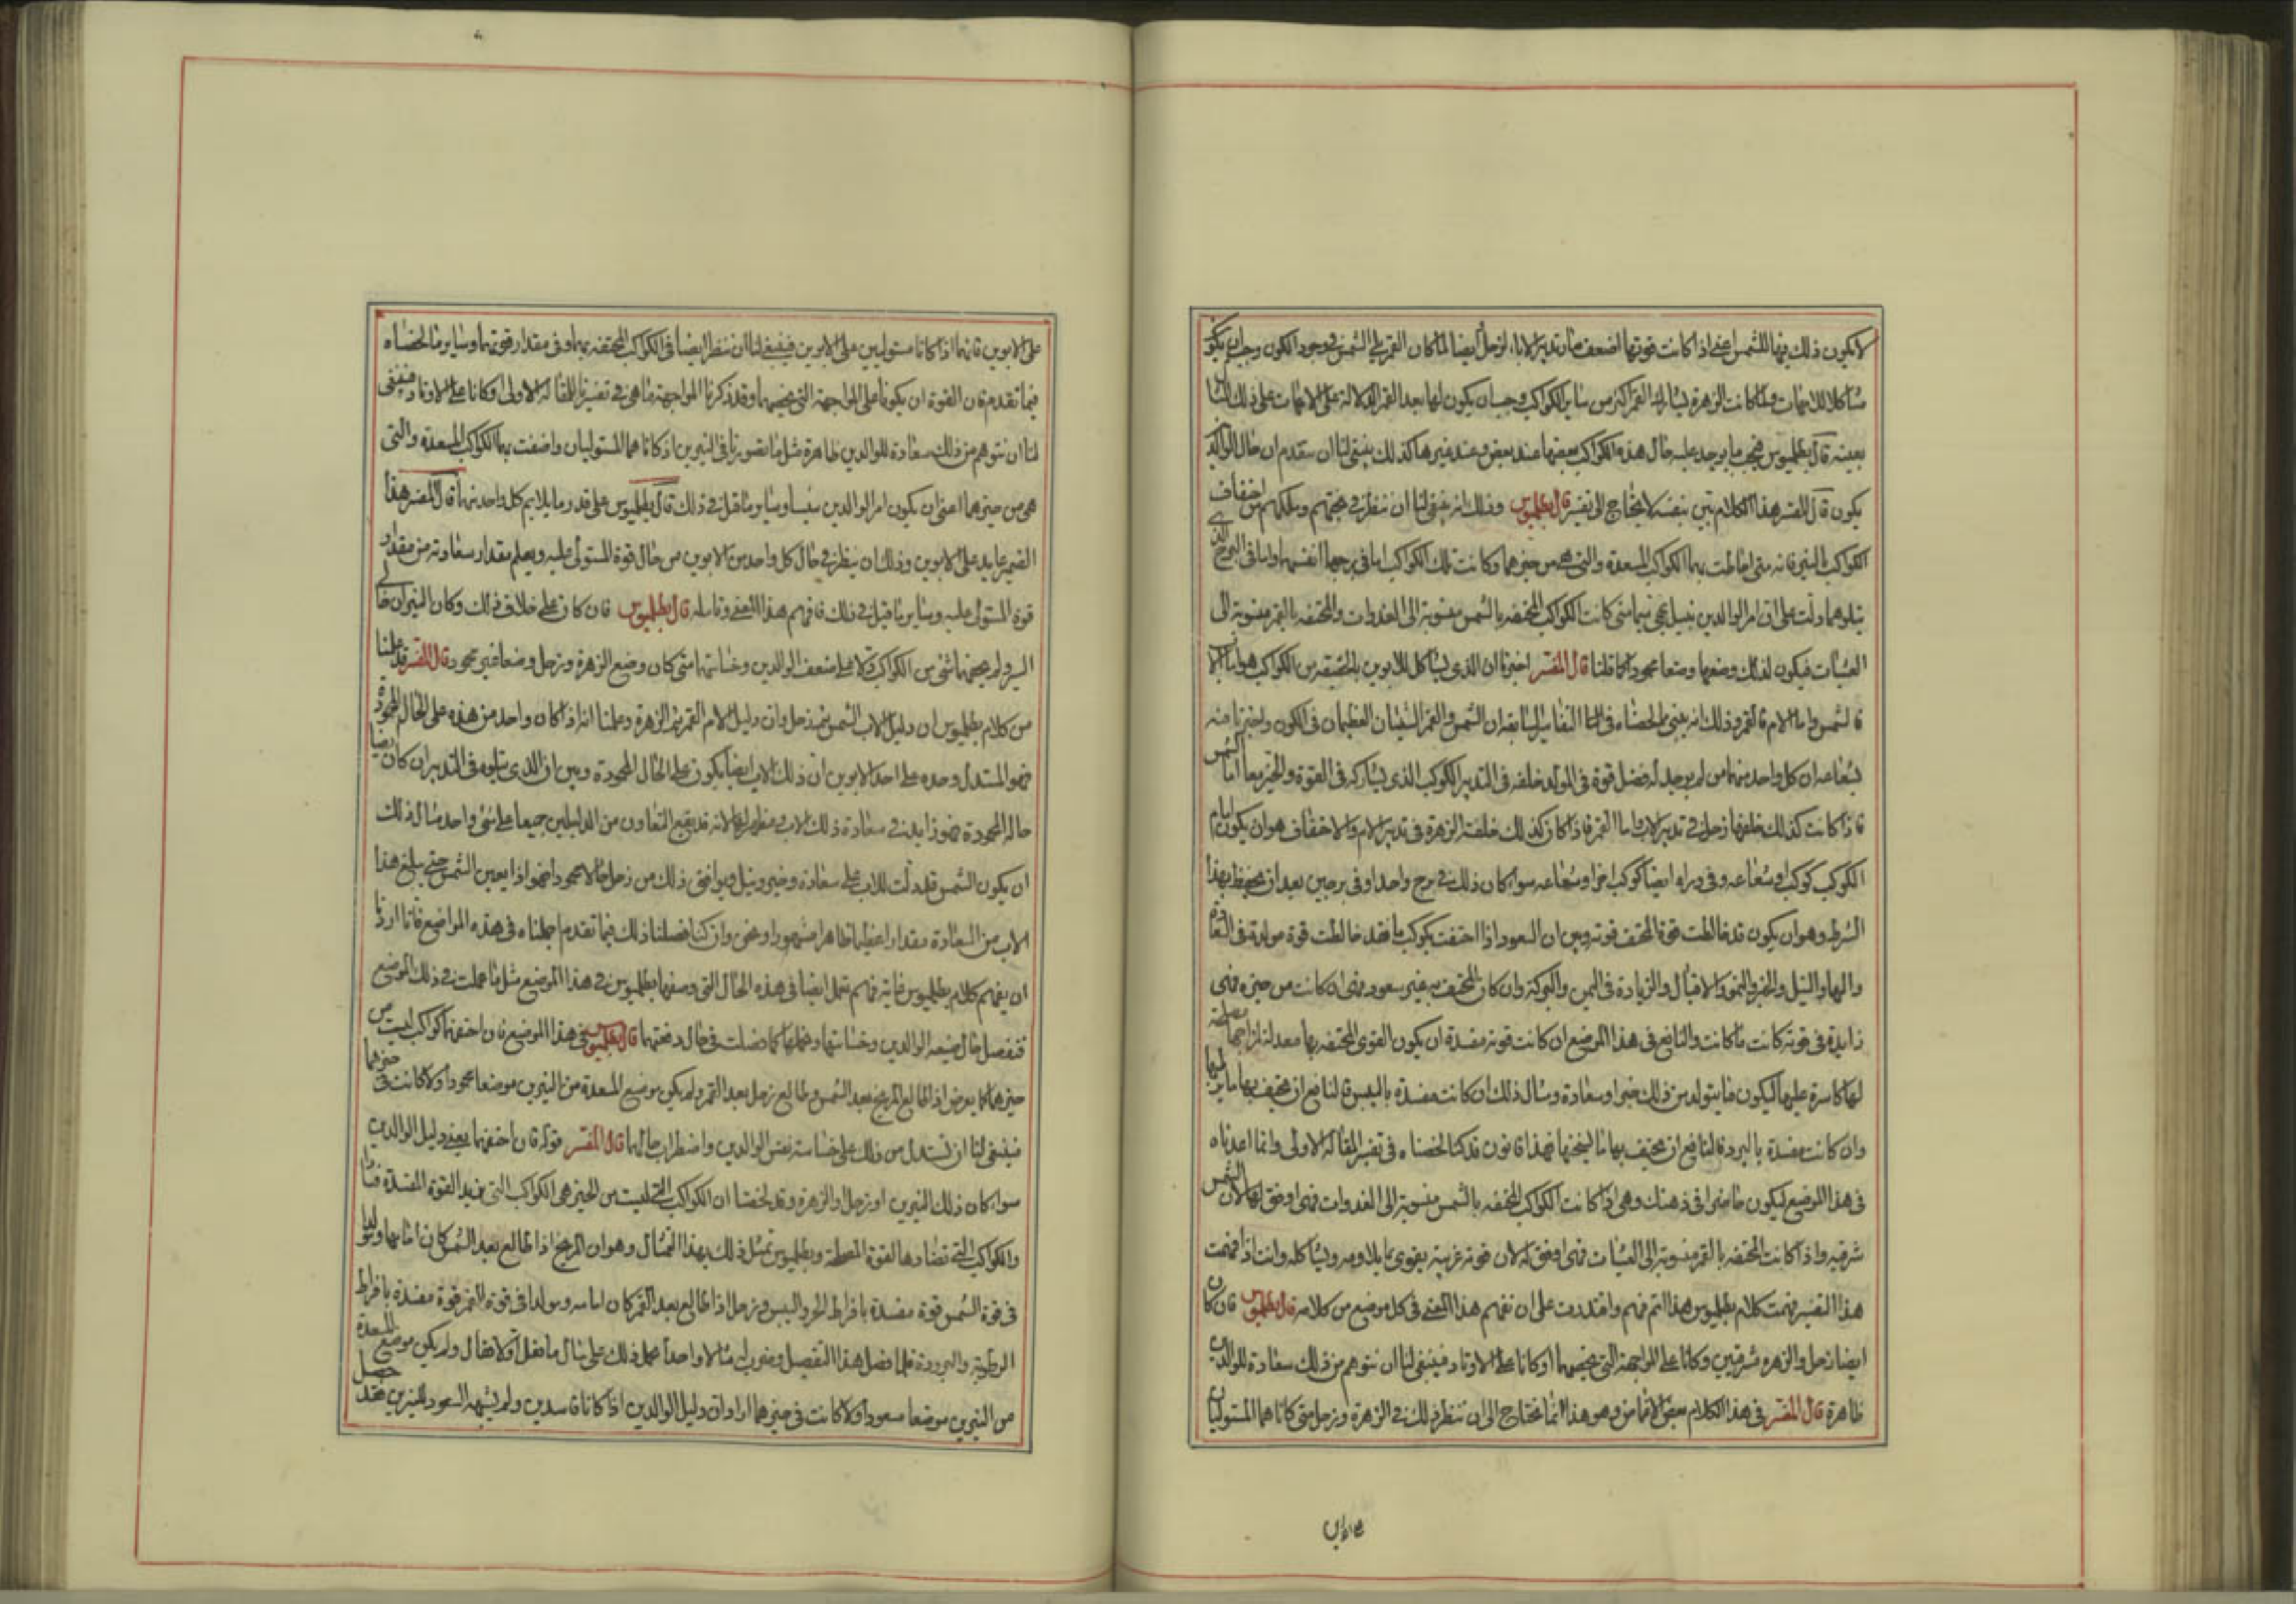 لا يكون ذلك فيها للشمس اعني اذا كانت قوتها اضعف صار تدبير الاباء لزحل ايضا لما كان القمر يلي الشمس في وجود الكون وجب ان يكون
مشاكلا للامهات ولما كانت الزهرة يشارك القمر اكثر من ساير الكواكب وجب ان يكون لها بعد القمر الدلالة على الامهات على ذلك المثال
بعينه قال بطلميوس فبحسب ما يوجد عليه حال هذه الكواكب بعضها عند بعض وعند غيرها كذلك ينبغي لنا ان نتقدم ان حال الوالدين
يكون قال المفسر هذا الكلام بين بنفسه لا يحتاج الى تفسير قال بطلميوس وذلك انه ينبغي لنا ان ننظر في بختهم وملكهم من احتفاف
الكواكب بالنيرين فانه متى احاطت بها الكواكب المسعدة والتي هي من حيزهما وكانت تلك الكواكب اما في برجها انفسها واما في البرج الذي
يتلوهما دلت على ان امر الوالدين نبيل بهي سيما متى كانت الكواكب المحتفه بالشمس منسوبة الى الغدوات والمحتفه بالقمر منسوبة الى
العشيات فيكون لذلك وضعها وضعا محمودا كما قلنا قال المفسر اخبرنا ان الذي يشاكل للابوين بالحقيقه من الكواكب هو اما الاب
فالشمس واما الام فالقمر وذلك انه بين مما لخصناه في التفاسير السابقه ان الشمس والقمر الشيئان العظيمان في الكون واخبرنا منه
بشعاعه ان كل واحد منهما من لم يوجد له فضل قوة في المولد خلفه في التدبير الكوكب الذي يشاركه في القوة والحيز معا اما الشمس
فاذا كانت كذلك خلفها زحل في تدبير الاب واما القمر فاذا كان كذلك خلفته الزهرة في تدبير الام والاحتفاف هو ان يكون امام
الكوكب كوكب او شعاعه وفي وراه ايضا كوكب اخر او شعاعه سواء كان ذلك في برج واحد او في برجين بعد ان يحتفظ بهذا
الشرط وهو ان يكون قد خالطت قوة المحتف قوته وبين ان السعود اذا احتفت بكوكب ما فقد خالطت قوة مولدة في القوة
والبهاء والنبل والخير والنمو والاقبال والزيادة في اليمن والبركة وان كان المحتف به غير سعود فهي ان كانت من حيزه فهي
زايدة في قوته كانت ما كانت والنافع في هذا الموضع ان كانت قوته مفسدة ان يكون القوى المحتفه بها معدلة لمزاجها مضادة
لها كاسرة عليها ليكون ما يتولد من ذلك خيرا وسعادة ومثال ذلك ان كانت مفسدة باليبس فالنافع ان يحتف بها ما يرطبها
وان كانت مفسدة بالبرد فالنافع ان يحتف بها ما يسخنها فهذا قانون قد كنا لخصناه في تفسير المقالة الاولى وانما اعدناه
في هذا الموضع ليكون حاضرا في ذهنك وهي اذا كانت الكواكب المحتفه بالشمس منسوبة الى الغدوات فهي اوفق لها لان الشمس
شرقيه واذا كانت المحتفه بالقمر منسوبة الى العشيات فهي اوفق له لان قوته غربية يقوى بما يلاومه ويشاكله وانت اذا فهمت
هذا التفسير فهمت كلام بطلميوس هذا اتم فهم واقتدرت على ان تفهم هذا المعنى في كل موضع من كلامه قال بطلميوس فان كان
ايضا زحل والزهره شرقيين وكانا على المواجهة التي تخصهما او كانا على الاوتاد فينبغي لنا ان نتوهم من ذلك سعادة للوالدين
ظاهرة قال المفسر في هذا الكلام بعض الاغماض وهو هذا انما نحتاج الى ان ننظر ذلك في الزهرة وزحل متى كانا هما المستوليان
على الابوين فانهما اذا كانا مستوليين على الابوين فينبغي لنا ان ننظر ايضا في الكواكب المحتفه بهما وفي مقدار قوتهما وساير ما لخصناه
فيما تقدم فان القوة ان يكونا على المواجهة التي تخصهما وقد ذكرنا المواجهة ما هي في تفسيرنا للمقالة الاولى او كانا على الاوتاد فينبغي
لنا ان نتوهم من ذلك سعادة للوالدين ظاهرة مثل ما تصورنا في النيرين اذ كانا هما المستوليان واحتفت بهما الكواكب المسعدة والتي
هي من حيزهما اعني ان يكون امر الوالدين نفيسا وساير ما قيل في ذلك قال بطلميوس على قدر ما يلايم كل واحد منهما قال المفسر هذا
الضمير عايد على الابوين وذلك ان ينظر في حال كل واحد من الابوين من حال قوة المستولى عليه ويعلم مقدار سعادته من مقدار
قوة المستولى عليه وساير ما قيل في ذلك فافهم هذا المعنى وتامله قال بطلميوس فان كان على خلاف ذلك وكان النيران خالي
السير ولم يحفهما شيء من الكواكب دلا على ضعف الوالدين وخساستهما متى كان وضع الزهرة وزحل وضعا غير محمود قال المفسر قد علمنا
من كلام بطلميوس ان دليل الاب الشمس ثم زحل وان دليل الام القمر ثم الزهرة وعلمنا انه اذا كان واحد من هذه على الحال المحمودة
فهو المستدل وحده على احد الابوين ان ذلك الاب ايضا يكون على الحال المحمودة وبين ان الذي يتلوه في التدبير ان كان ايضا
حاله المحمودة فهو زايد في سعادة ذلك الاب ومظهر لها لانه قد يقع التعاون من الدليلين جميعا على شيء واحد مثال ذلك
ان يكون الشمس قد دلت للاب على سعادة وخير ونبل ويوافق ذلك من زحل حالا محمودا فهو اذا يعين الشمس حتى يبلغ هذا
الاب من السعادة مقدارا عظيما ظاهرا مشهورا وغنى وان كنا فصلنا ذلك فيما تقدم اجملناه في هذه المواضع فانا اردنا
ان يفهم كلام بطلميوس غاية فهم تعمل ايضا في هذه الحال التي وصفها بطلميوس في هذا الموضع مثل ما عملت في ذلك الموضع
فتفصل حال ضعة الوالدين وخساستهما وهملها كما فصلت في حال رفعتهما قال بطلميوس في هذا الموضع فان احتفهما كواكب ليست من
حيزهما كما يعرض اذا طالع المريخ بعد الشمس وطالع زحل بعد القمر ولم يكن موضع المسعدة من النيرين موضعا محمودا ولا كانت في حيزهما
فينبغي لنا ان نستدل من ذلك على خساسة نفس الوالدين واضطراب حالهما قال المفسر قوله فان احتفهما يعني دليل الوالدين
سواء كان ذلك النيرين او زحل والزهرة وقد لخصنا ان الكواكب التي ليست من الحيز هي الكواكب التي يزيد القوة المفسدة فسادا
والكواكب التي تضادها القوة وبطلميوس تمثل في ذلك بهذا التمثال وهو ان المريخ اذا طالع بعد الشمس كان امامها ويولد
في قوة الشمس قوة مفسدة بافراط الحر واليبس وزحل اذا طالع بعد القمر كان امامه ويولد في قوة القمر قوة مفسدة بافراط
الرطوبة والبرودة فلما فصل هذا التفصيل وضرب له مثالا واحدا عمل ذلك على مثال ما فعل اولا فقال ولم يكن موضع المسعدة
من النيرين موضعا مسعودا ولا كانت في حيزهما اراد ان دليل الوالدين اذا كانا فاسدين ولم يشبه السعود للنيرين فقد حصل